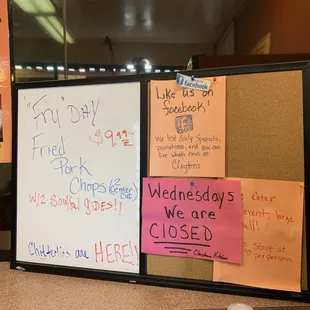 "Fry" DAY
$9.99
Fried
Pork
Chops (2 Center Cut)
W/2 Soulful SIDES!!
Chitterlins are HERE!!
Like us on
facebook!
facebook
We list daily Specials,
promotions, and you can
like what's new at
Claytons
Wednesdays
We are
CLOSED
Clayton's Kitchen
event, large
Start at
per person